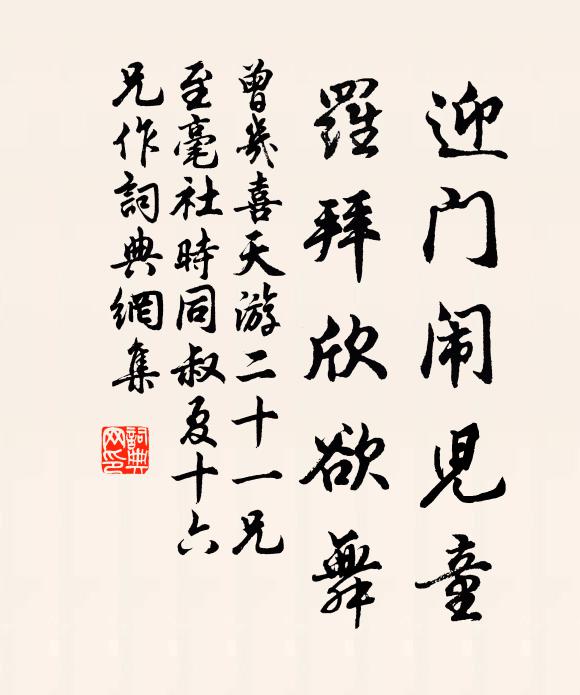 迎门闹兒童
羅拜欣欲舞
曾幾喜天游二十一兄
至毫社時同叔夏十六
兄作詞典網集
詞典
网印